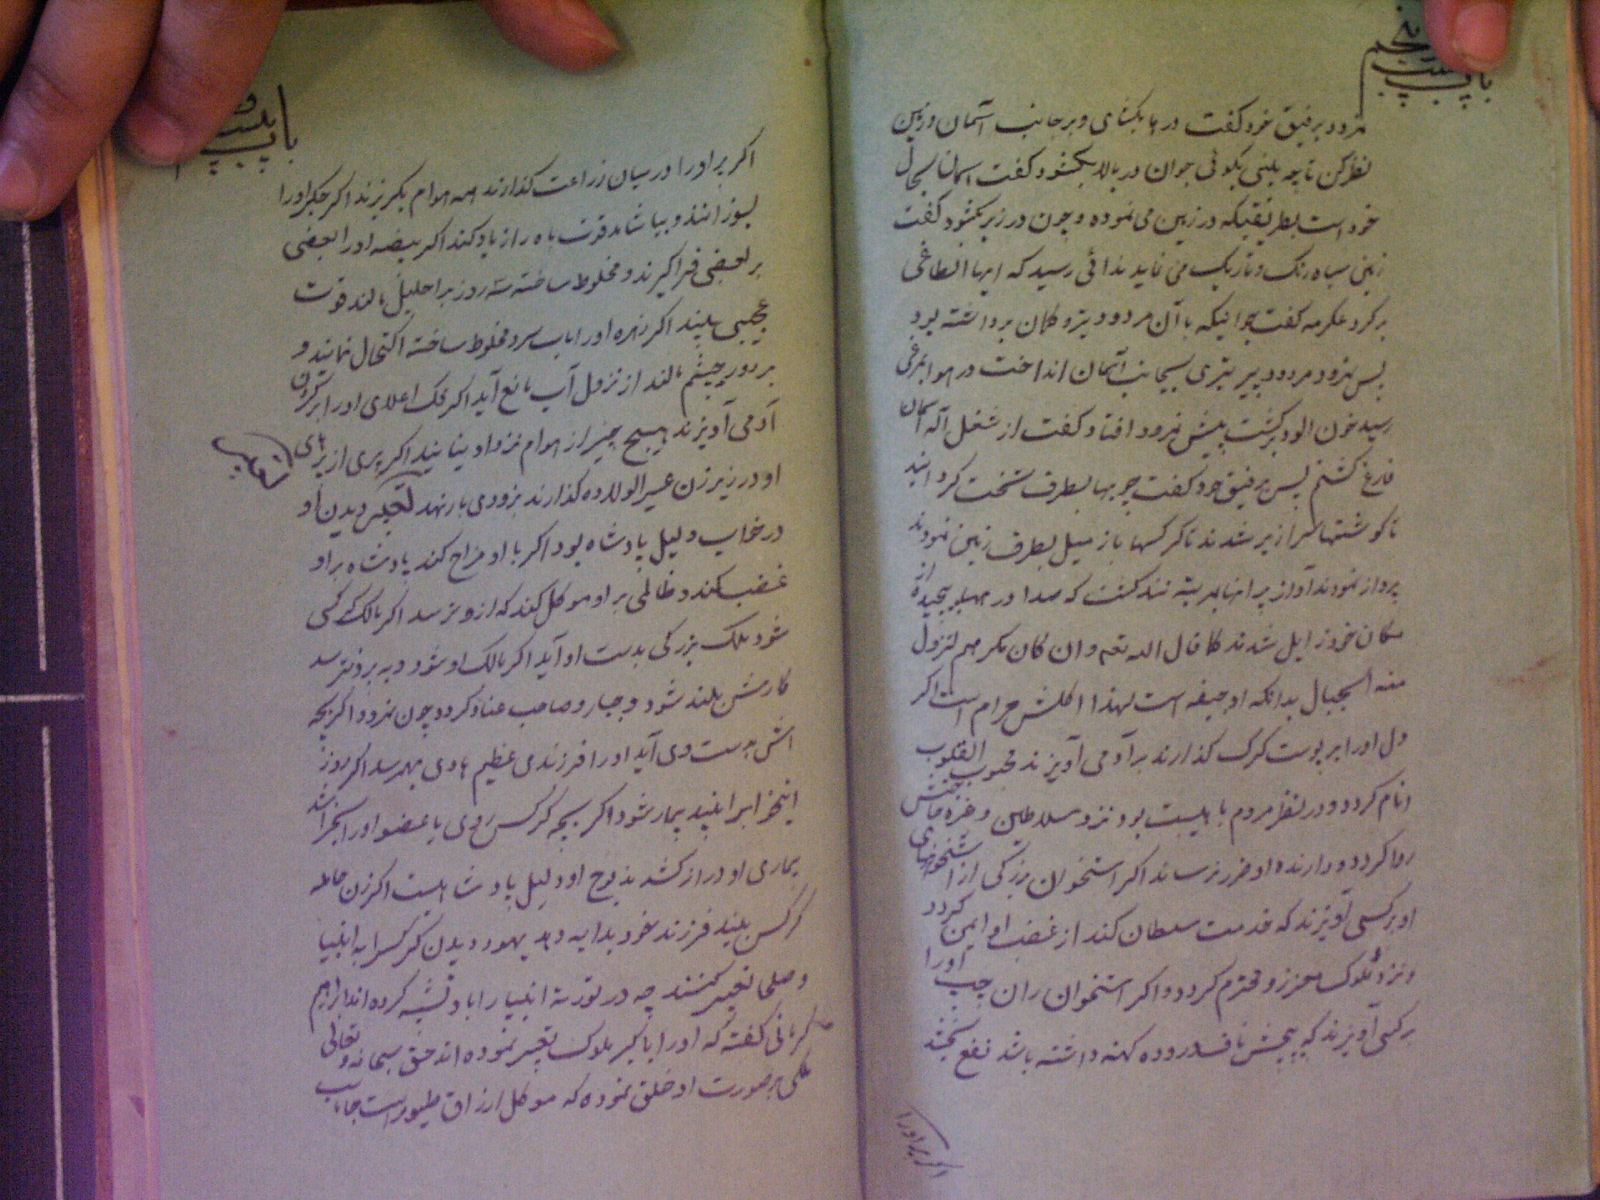 باب بیست و پنجم
نمرود برفیق خود گفت درها بکشای و بر جانب آسمان و زمین
نظر کن تا چه بینی بگوئی جوان در بالا بکشود گفت اسمان بحال
خود است بطریقیکه در زمین می نموده و چون در زیر بکشود گفت
زمین سیاه رنک و تاریک می نماید ندائی رسید که ایها الطاغی
برکرد عکرمه گفت جوانیکه با آن مردود تیر و کمان برداشته بود
پس نمرود مردود پیر تیری بجانب آسمان انداخت در هوا بمرغی
رسید خون الود برکشت پیش نمرود افتاد گفت از شغل آله آسمان
فارغ کشتم پس برفیق خود گفت چوبها بطرف تخت کردانید
تا کوشتها سرازیر شدند تا کرکسها باز میل بطرف زمین نمودند
پرواز نمودند آواز پر انها بمرتبه تند کشت که صدا در جبال پیچیده از
مکان خود زایل شدند کما قال الله تعه و ان کان مکرهم لتزول
منه الجبال بدانکه او جیفه است لهذا اکلش حرام است اکر
دل او را بر پوست کرک کذارند بر آدمی آویزند محبوب القلوب
انام کردد و در نظر مردم با هیبت بود نزد سلاطین و غیره حاجتش
روا کردد و دارنده او ضرر نرساند اکر استخوان بزرگی از استخوانهای
او بر کسی آویزند که خدمت سلطان کند از غضب او ایمن کردد
و نزد ملوک معزز و محترم کردد و اکر استخوان ران چپ او را
بر کسی آویزند که پیچش ناف در روده کهنه داشته باشد نفع بخشد
اکر پر او را
باب بیست و
اکر پر او را در میان زراعت کذارند همه هوام بکریزند اکر جکر او را
بسوزانند و بیاشامد قوت باه را زیاد کند اکر بیضه او را بعضی
بر بعضی فرا کیرند و مخلوط ساخته سه روز بر احلیل مالند قوت
عجیبی بیند اکر زهره او را با آب سرد مخلوط ساخته اکتحال نمایند و
بر دور چشم مالند از نزول آب مانع آید اکر فک اعلای او را بر کردن
آدمی آویزند هیچ چیز از هوام نزد او نیایند اکر پری از پرهای
او در زیر زن عسیر الولاده کذارند بزودی بار نهد تعبیر دیدن او
تعبیر
در خواب دلیل پادشاه بود اکر با او مزاح کند پادشاه بر او
غضب کند و ظالمی بر او موکل کند که از او ترسد اکر مالک کرکسی
شود ملک بزرکی بدست او آید اکر مالک او شود و به پرد نترسد
کارش بلند شود و جبار و صاحب عناد کردد چون نمرود اکر بچه
اش بدست وی آید او را فرزندی عظیم هادی بهم رسد اکر روز
اینخواب را بیند بیمار شود اکر بچه کرکس روی یا عضو او را بخراشد
بیماری او دراز کشد مذبوح او دلیل پادشاهیست اکر زن حامله
کرکس بیند فرزند خود بدایه دهد یهود دیدن کرکس را به انبیا
و صلحا تعبیر کنند چه در توریة انبیا را باو تشبیه کرده اند ابراهیم
کرمانی گفته که او را باکبر ملوک تعبیر نموده اند حق سبحانه و تعالی
ملکی بر صورت او خلق نموده که موکل ارزاق طیور است جاماسب